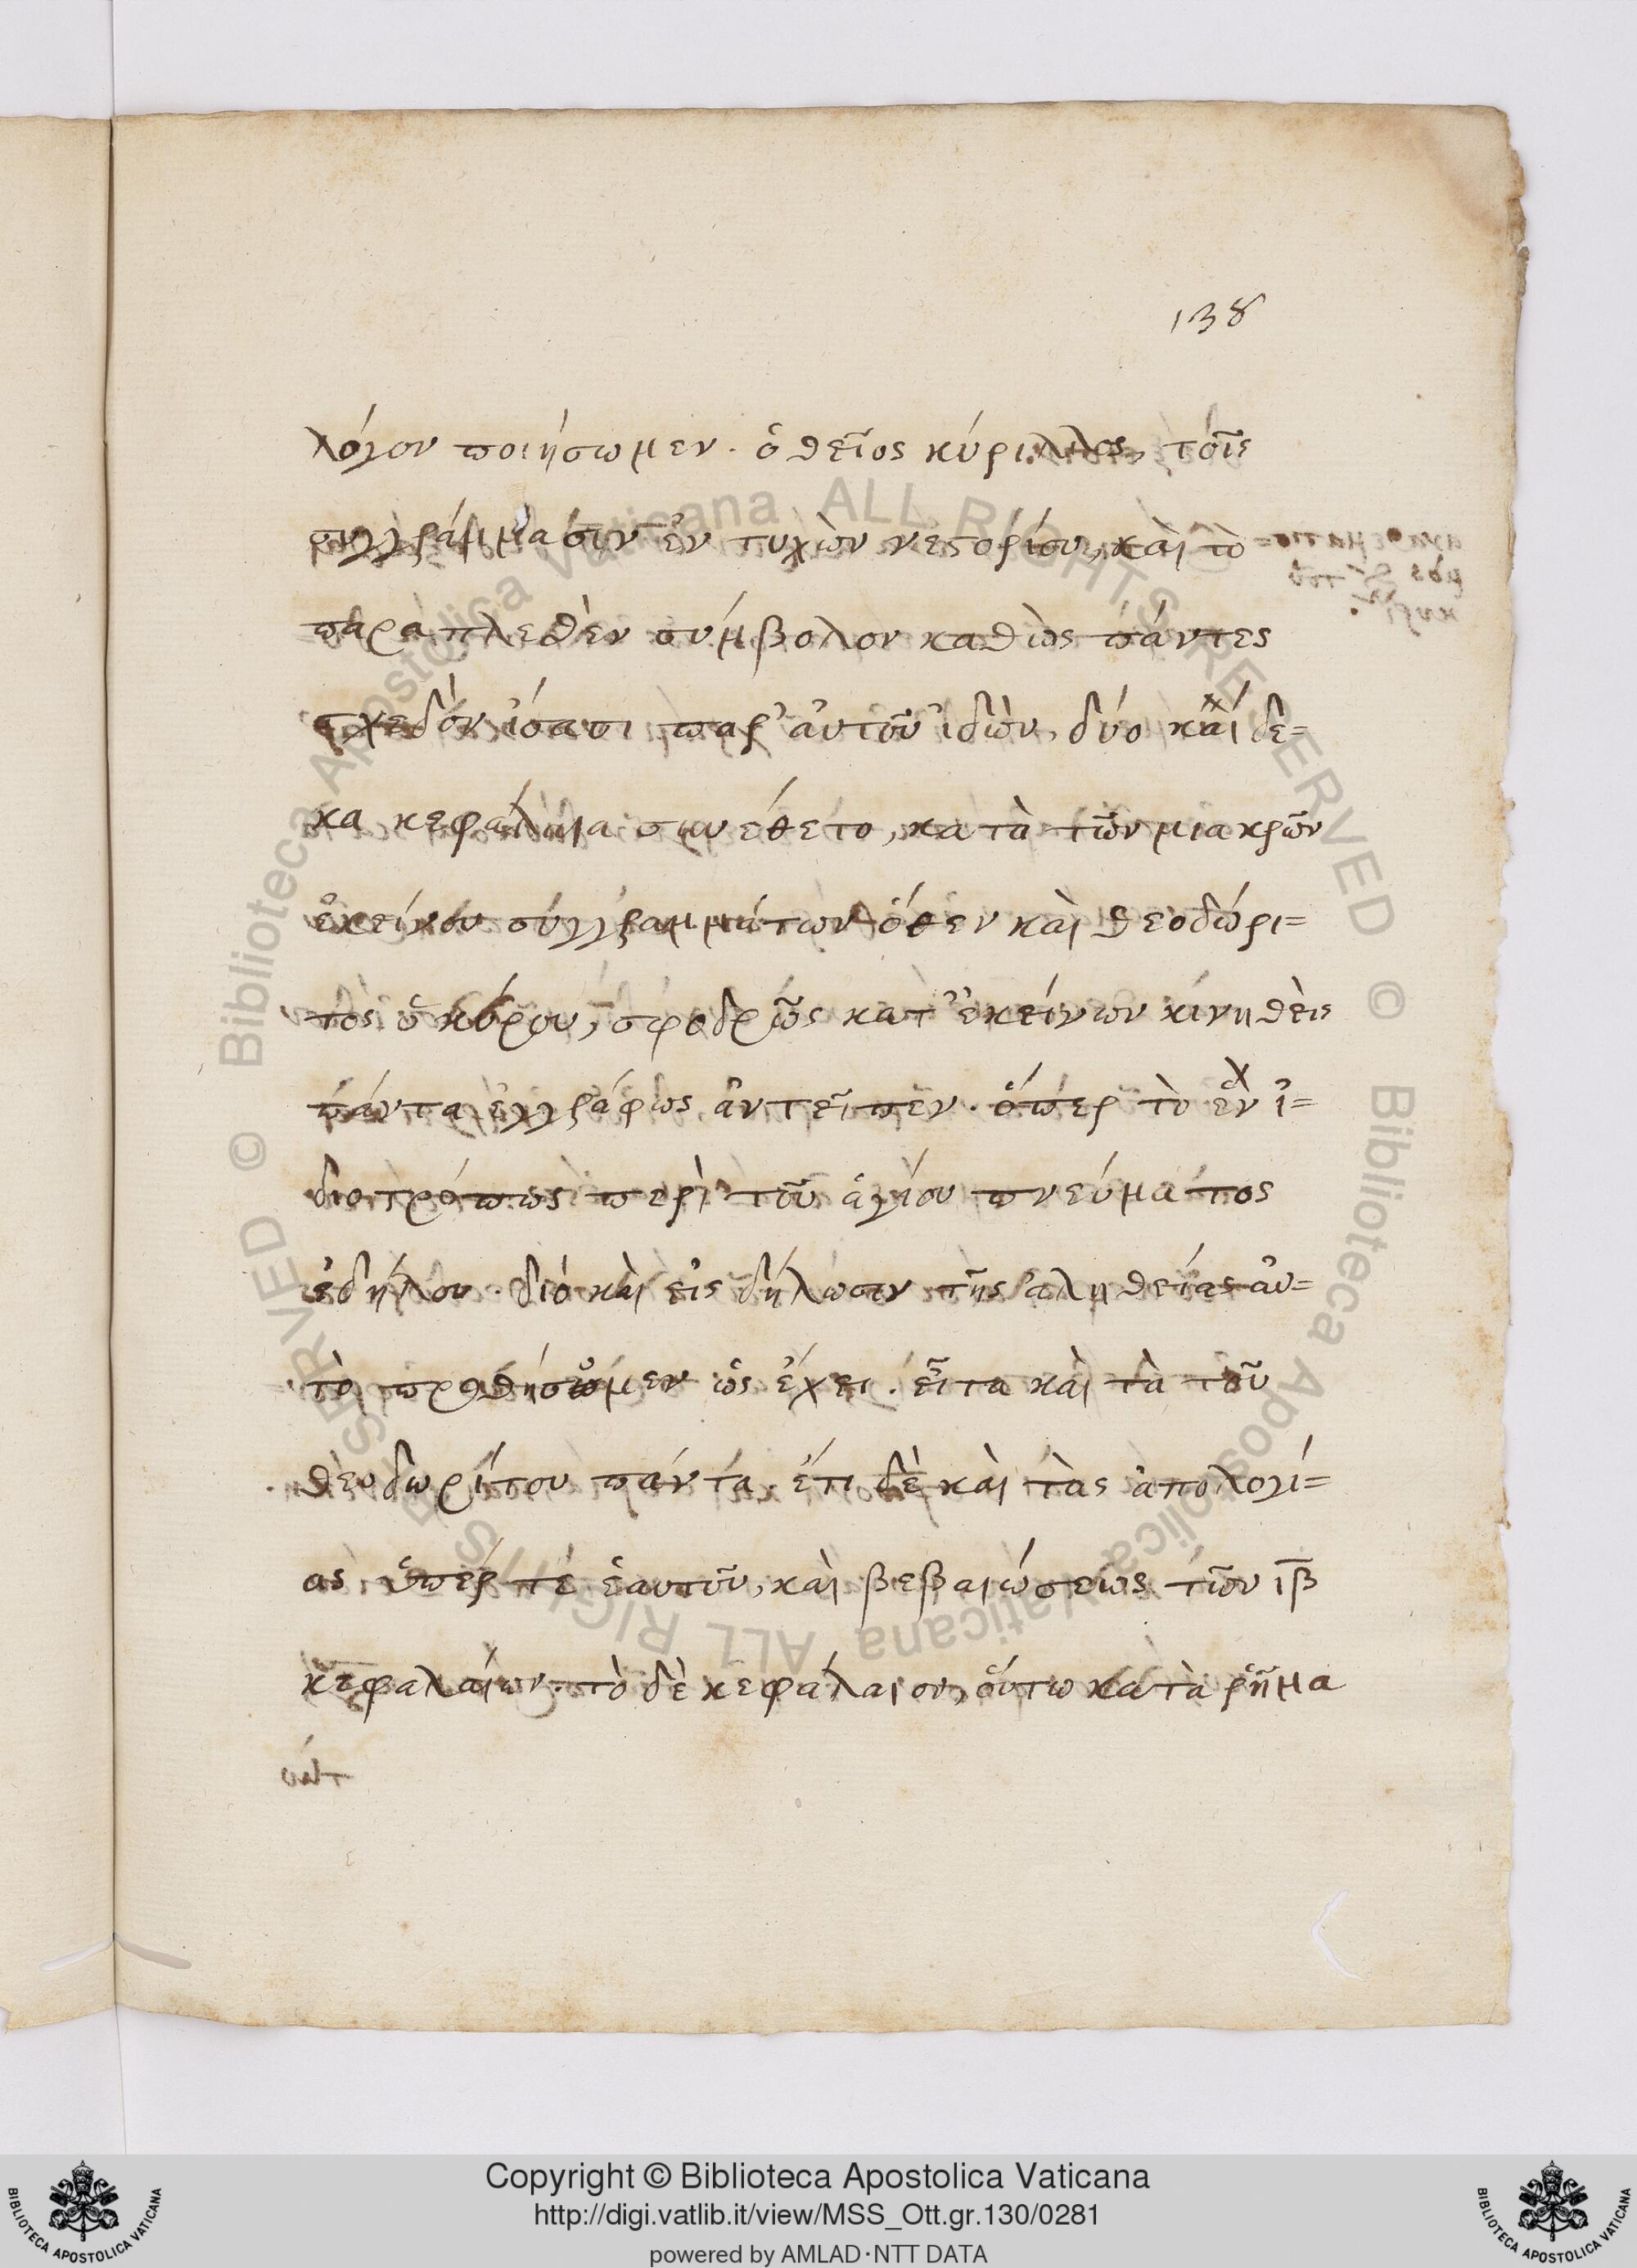 138
λόγον ποιήσωμεν. ὁ θεῖος κύριλλος, τοῖς
συγγράμμασιν ἐν τυχὼν νεστορίου, καὶ τὸ
παραπλεθὲν σύμβολον καθὼς πάντες
σχεδὸν ἴσασι παρ' αὐτοῦ ἰδὼν, δύο καί δε=
κα κεφάλαια συνέθετο, κατὰ τῶν μιακρῶν
ἐκείνου συγγραμμάτων ὅθεν καὶ θεοδώρι=
τος ὁ κύρου, σφοδρῶς κατ' ἐκείνων κινηθεὶς
πάντα ἐγγράφως ἀντεῖπεν. ὅπερ τὸ ἓν ἰ=
διοτρόπως περὶ τοῦ ἁγίου πνεύματος
ἐδήλου. διὸ καὶ εἰς δήλωσιν τῆς ἀληθείας αὐ=
τὸ προθήσομεν ὡς ἔχει. εἶτα καὶ τὰ τοῦ
θεοδωρίτου πάντα. ἔτι δὲ καὶ τὰς ἀπολογί=
ας ὑπέρ τε ἑαυτοῦ, καὶ βεβαιώσεως τῶν ιβ
κεφαλαίων. τὸ δὲ κεφάλαιον, οὕτω κατὰ ῥῆμα
Copyright © Biblioteca Apostolica Vaticana
http://digi.vatlib.it/view/MSS_Ott.gr.130/0281
powered by AMLAD·NTT DATA
BIBLIOTECA APOSTOLICA VATICANA
BIBLIOTECA APOSTOLICA VATICANA
© Biblioteca Apostolica Vaticana ALL RIGHTS RESERVED
© Biblioteca Apostolica Vaticana ALL RIGHTS RESERVED